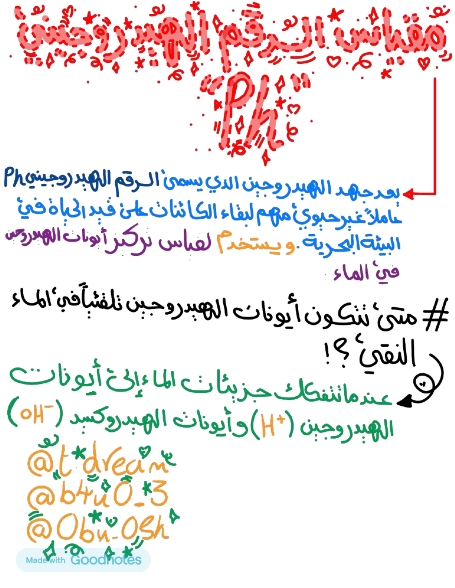 مقياس الرقم الهيدروجيني
"Ph"
يعد جهد الهيدروجين الذي يسمى الرقم الهيدروجيني Ph
عاملاً غير حيوي مهم لبقاء الكائنات على قيد الحياة في
البيئة البحرية . ويستخدم لقياس تركيز أيونات الهيدروجين
في الماء
# متى تتكون أيونات الهيدروجين تلقائياً في الماء
النقي ؟!
عندما تتفكك جزيئات الماء إلى أيونات
الهيدروجين (H+) وأيونات الهيدروكسيد (OH-)
@t*dream
@b4u0_3
@0bu_0sh
Made with Goodnotes